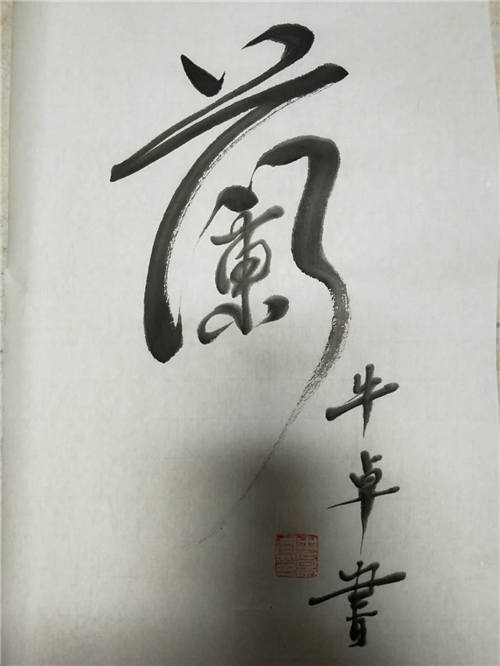 蘭
牛卓書